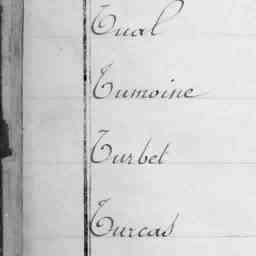 Tual
Tumoine
Turbet
Turcas